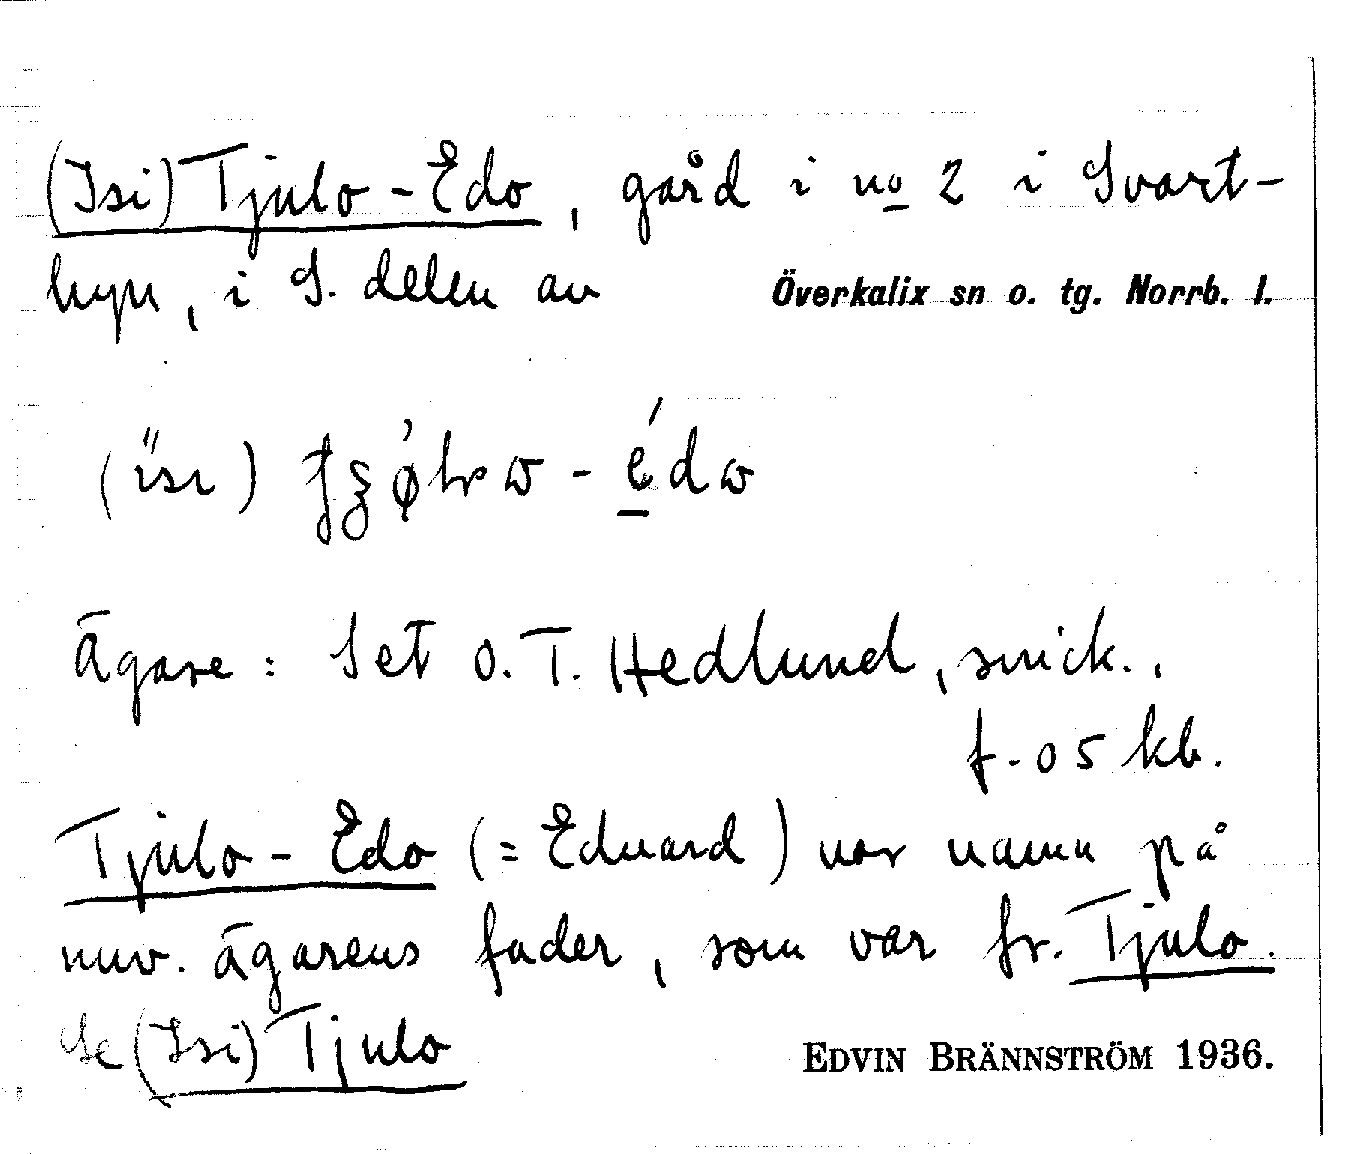 (Isi) Tjulo-Edo, gård i no 2 i Svart-
byn, i S. delen av Överkalix sn o. tg. Norrb. l.
Ägare: Set O. T. Hedlund, snick.,
f. 05 kb.
Tjulo-Edo (= Eduard) var namn på
nuv. ägarens fader, som var fr. Tjulo.
Se (Isi) Tjulo
EDVIN BRÄNNSTRÖM 1936.